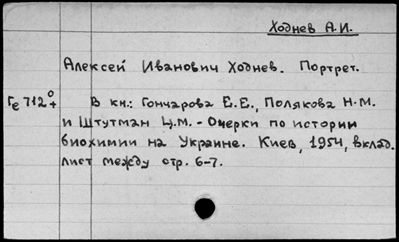 Ходнев А.И.
Алексей Иванович Ходнев. Портрет.
Ге 712 0+
В кн.: Гончарова Е.Е., Полякова Н.М.
и Штутман Ц.М. - Очерки по истории
биохимии на Украине. Киев, 1954, вклад.
лист между стр. 6-7.